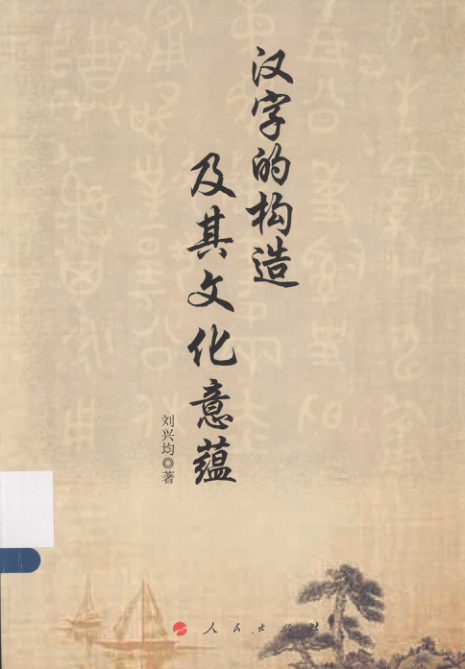 汉字的构造
及其文化意蕴
刘兴均◎著
人民出版社